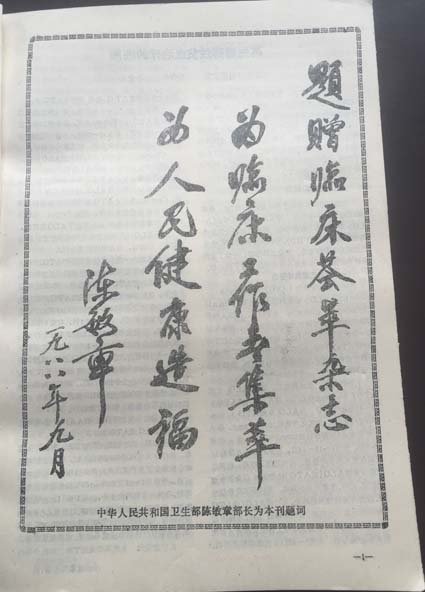 題贈临床荟萃杂志
为临床工作者集萃
为人民健康造福
陈敏章
一九八八年九月
中华人民共和国卫生部陈敏章部长为本刊题词
—1—